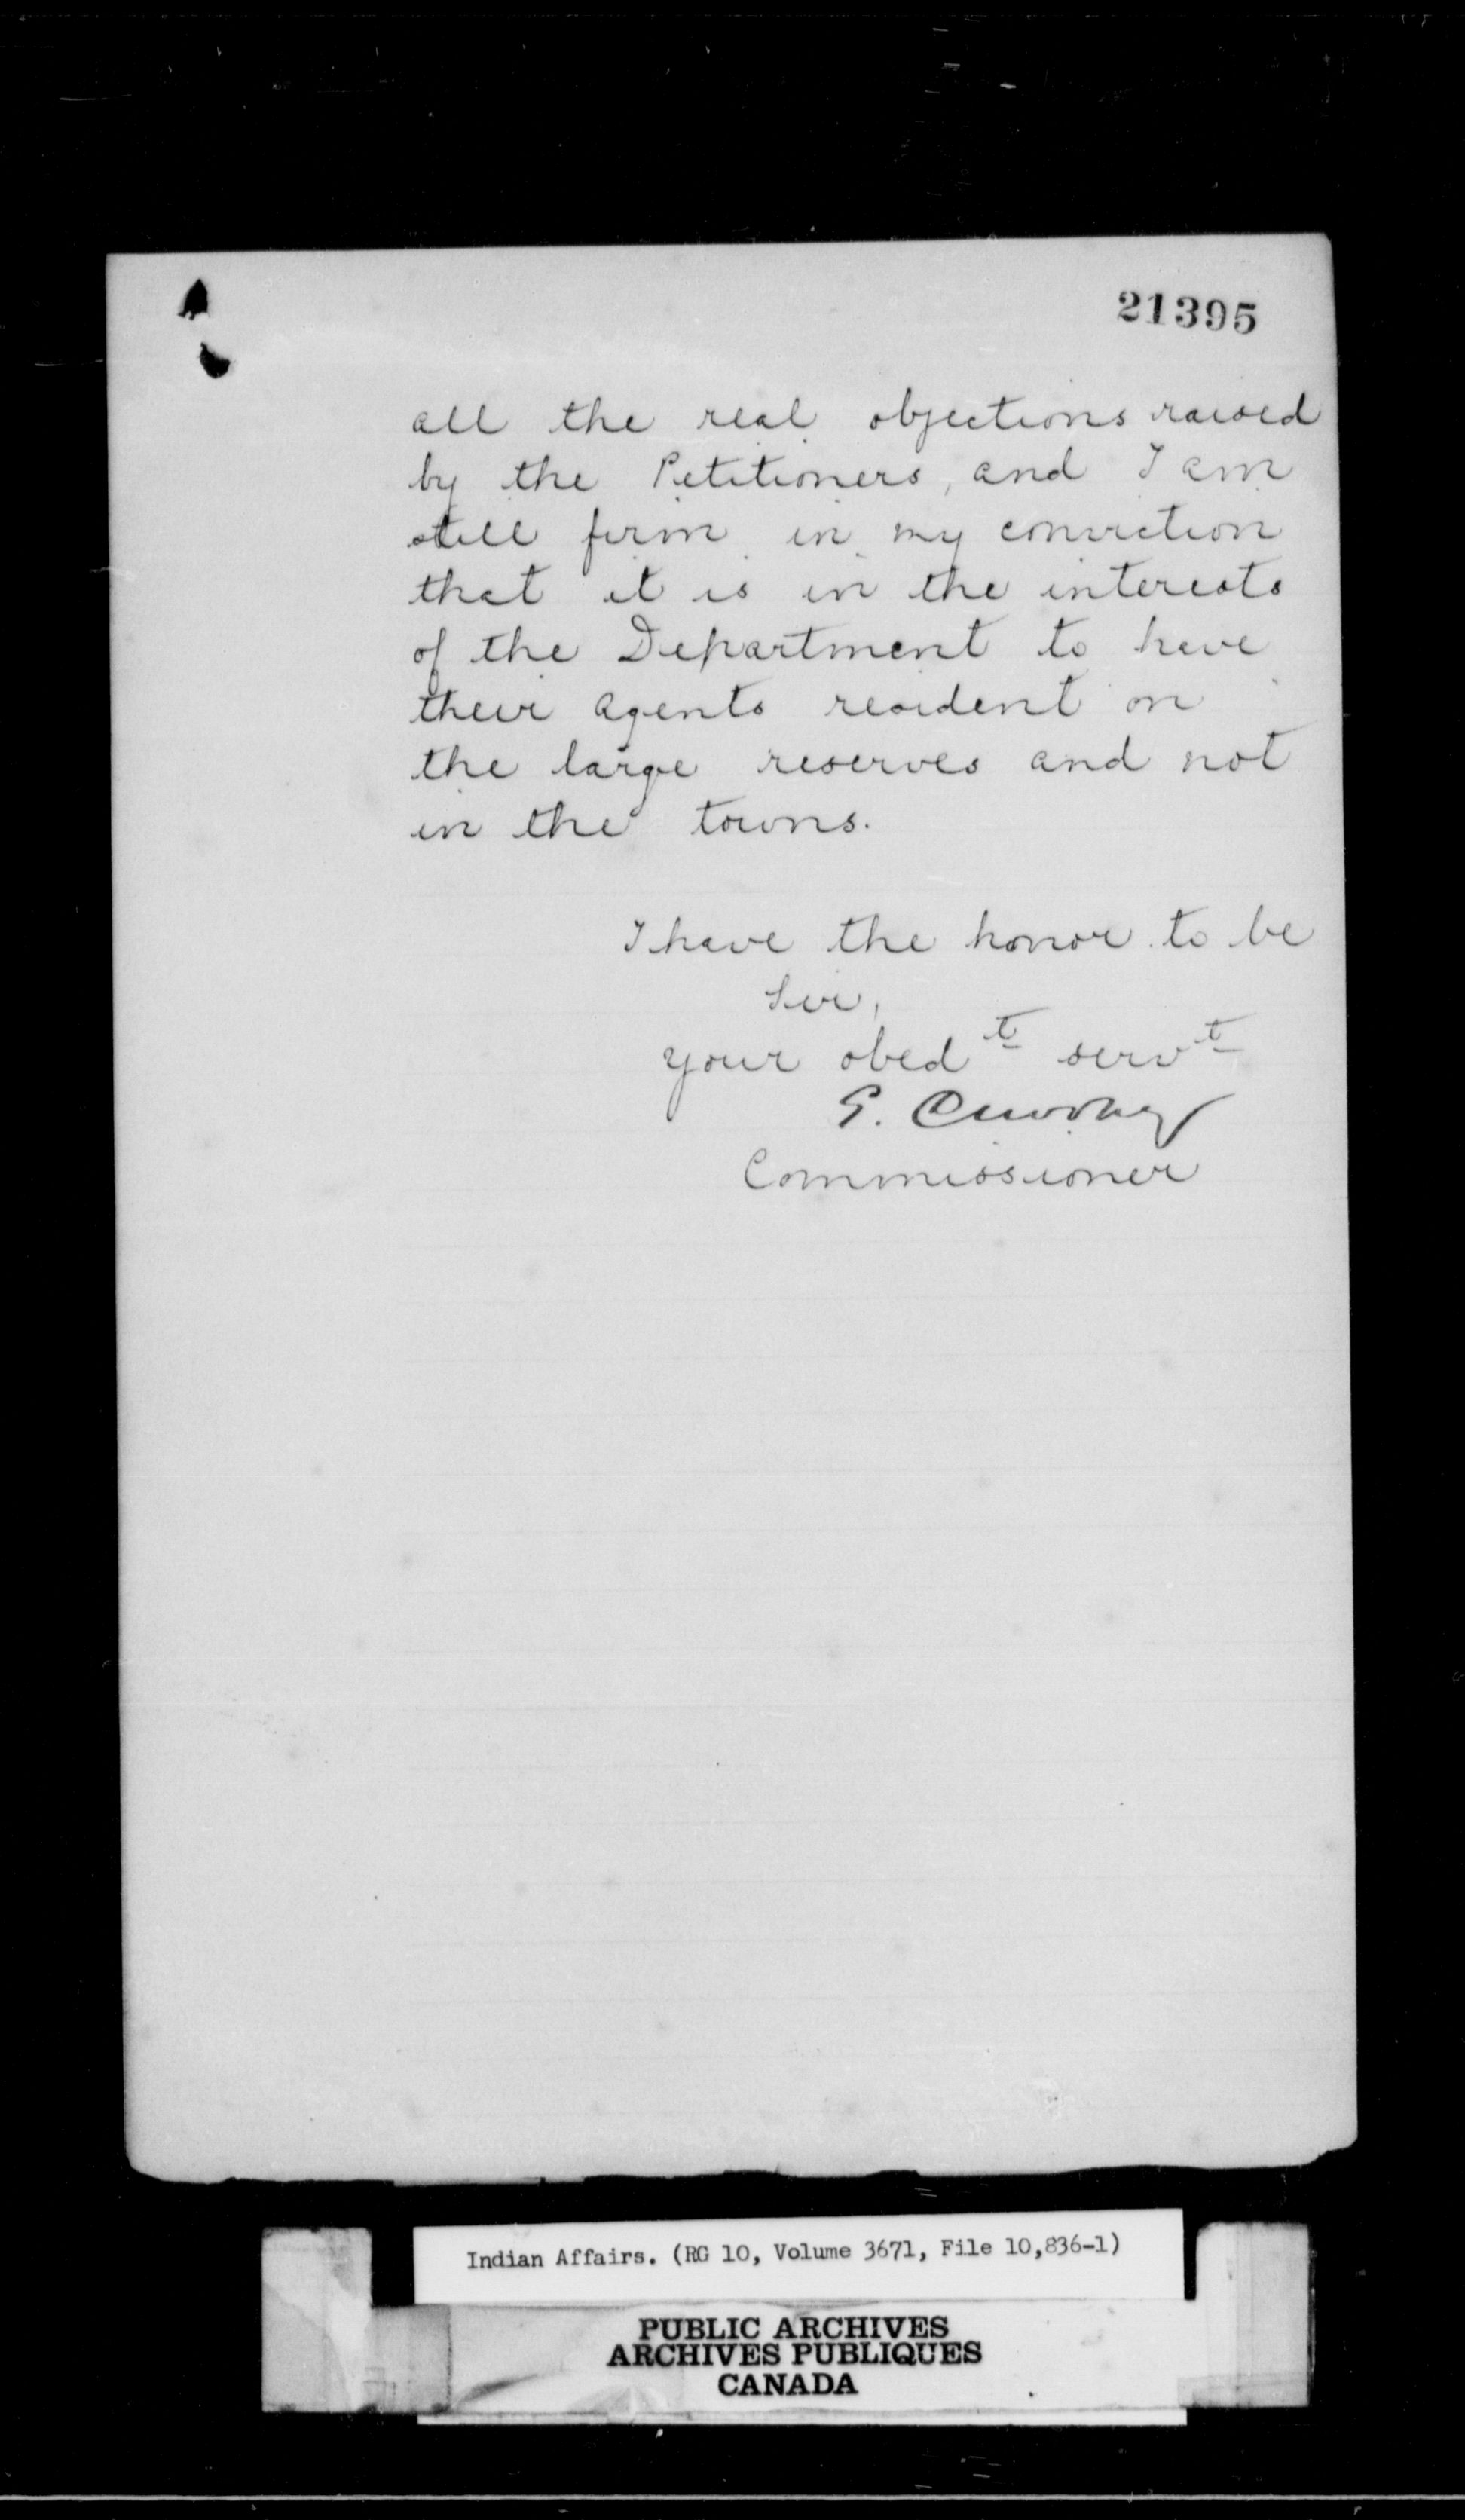 21395
all the real objections raised
by the Petitioners, and I am
still firm in my conviction
that it is in the interests
of the Department to have
their agents resident on
the large reserves and not
in the towns.
I have the honor to be
Sir,
your obedt servt
E. Dewdney
Commissioner
Indian Affairs. (RG 10, Volume 3671, File 10,836-1)
PUBLIC ARCHIVES
ARCHIVES PUBLIQUES
CANADA